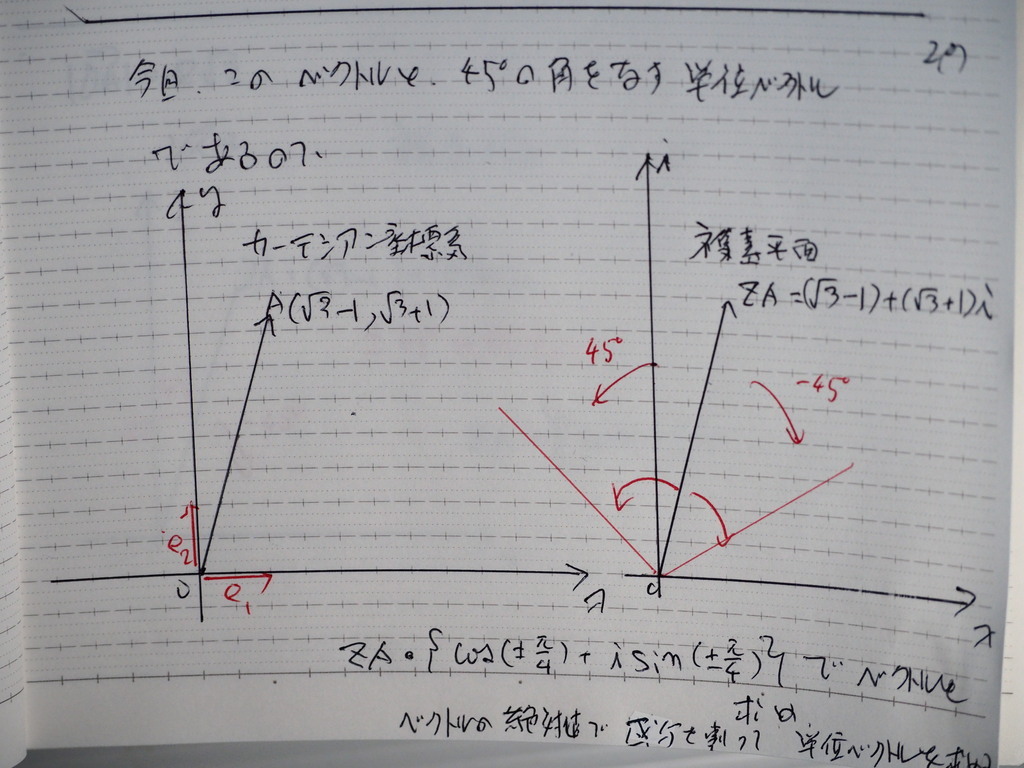 2の
今回、このベクトルと、45°の角をなす単位ベクトル
であるので、
y
カーテシアン座標系
A(√3-1,√3+1)
e2
e1
0
x
i
複素平面
ZA=(√3-1)+(√3+1)i
45°
-45°
0
x
ZA・{cos(±π/4)+isin(±π/4)}でベクトルを
求め
ベクトルの絶対値で成分を割って 単位ベクトルを求め